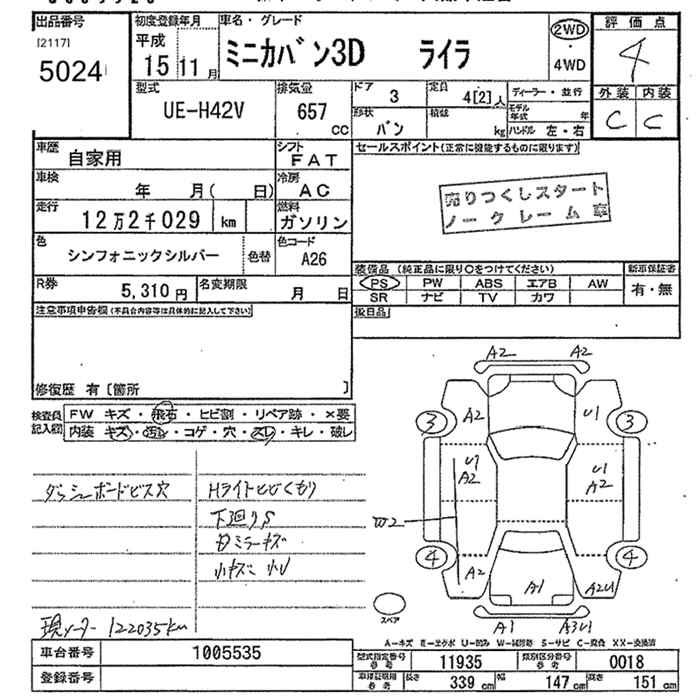 出品番号
[2117]
5024
初度登録年月
平成
15 11月
車名・グレード
ミニカバン3D ライラ
2WD
4WD
評価点
4
外装 内装
C C
型式
UE-H42V
排気量
657
cc
ドア
3
定員
4[2]人
形状
バン
積載
kg
ディーラー・並行
モデル年式 年
ハンドル 左・右
車歴
自家用
シフト
FAT
車検
年 月( 日)
冷房
AC
走行
12万2千029 km
燃料
ガソリン
色
シンフォニックシルバー
色替
色コード
A26
R券
5,310円
名変期限
月 日
セールスポイント(正常に機能するものに限ります)
売りつくしスタート
ノークレーム車
装備品 (純正品に限り○をつけてください)
PS PW ABS エアB AW
SR ナビ TV カワ
新車保証書
有・無
後日品
注意事項申告欄(不具合内容等は具体的に記入して下さい)
修復歴 有〔箇所 〕
検査員記入欄
FW キズ・飛石・ヒビ割・リペア跡・×要
内装 キズ・汚れ・コゲ・穴・スレ・キレ・破レ
ダッシュボードビス穴
Hライトヒビくもり
下廻りS
ミラーキズ
小キズ 小U
現メーター 122035km
A2 A2
A2 U1
3 3
U1 A2
U1 A2
W2
4 4
A2 A1 A2U1
A1 A3U1
スペア
A-キズ E-エクボ U-凹み W-補修跡 S-サビ C-腐食 XX-交換済
車台番号
1005535
登録番号
型式指定番号
参考
11935
類別区分番号
参考
0018
車検証記載
参考
長さ
339 cm
幅
147 cm
高さ
151 cm